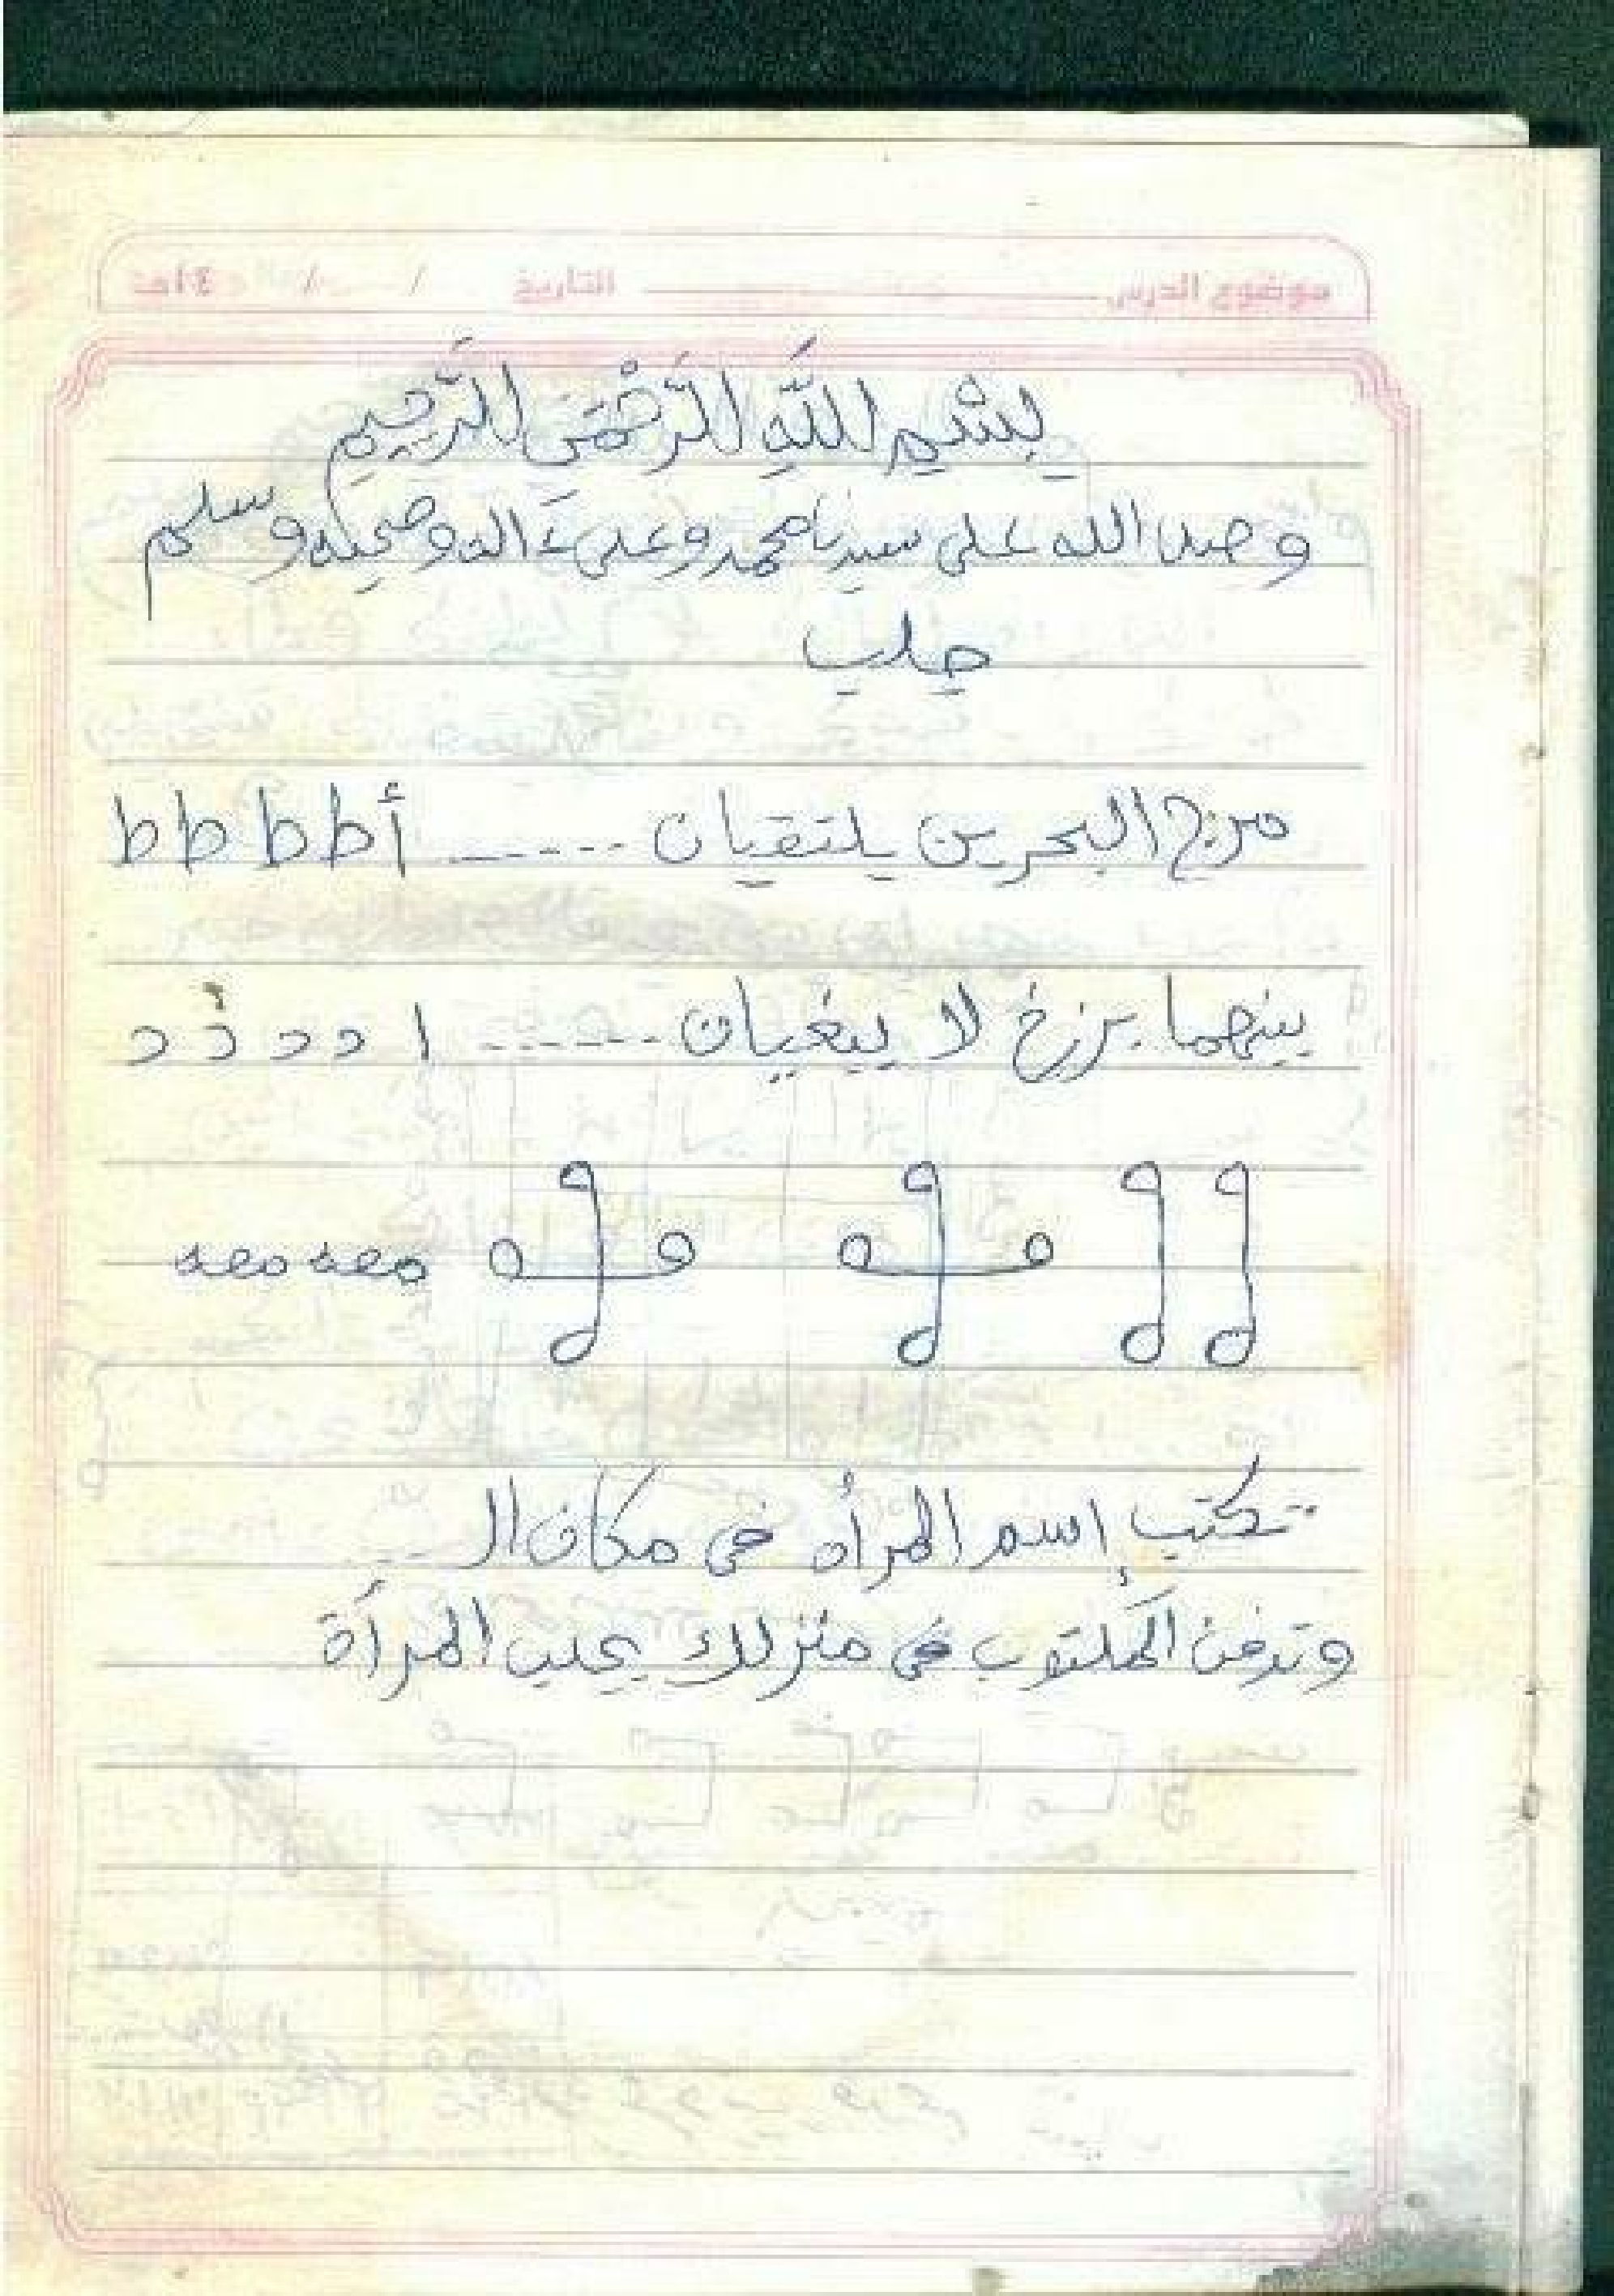 موضوع الدرس التاريخ / / ١٤هـ
بِسْمِ اللَّهِ الرَّحْمَنِ الرَّحِيمِ
وصل الله على سيدنا محمد وعلى ءاله وصحبه وسلم
جلب
مرج البحرين يلتقيان ...... أ ط ط ط ط
بينهما برزخ لا يبغيان ...... ا د د ذ د
معه معه
تكتب إسم المرأة في مكان ال ...
وتدفن المكتوب في منزلك يجلب المرأة